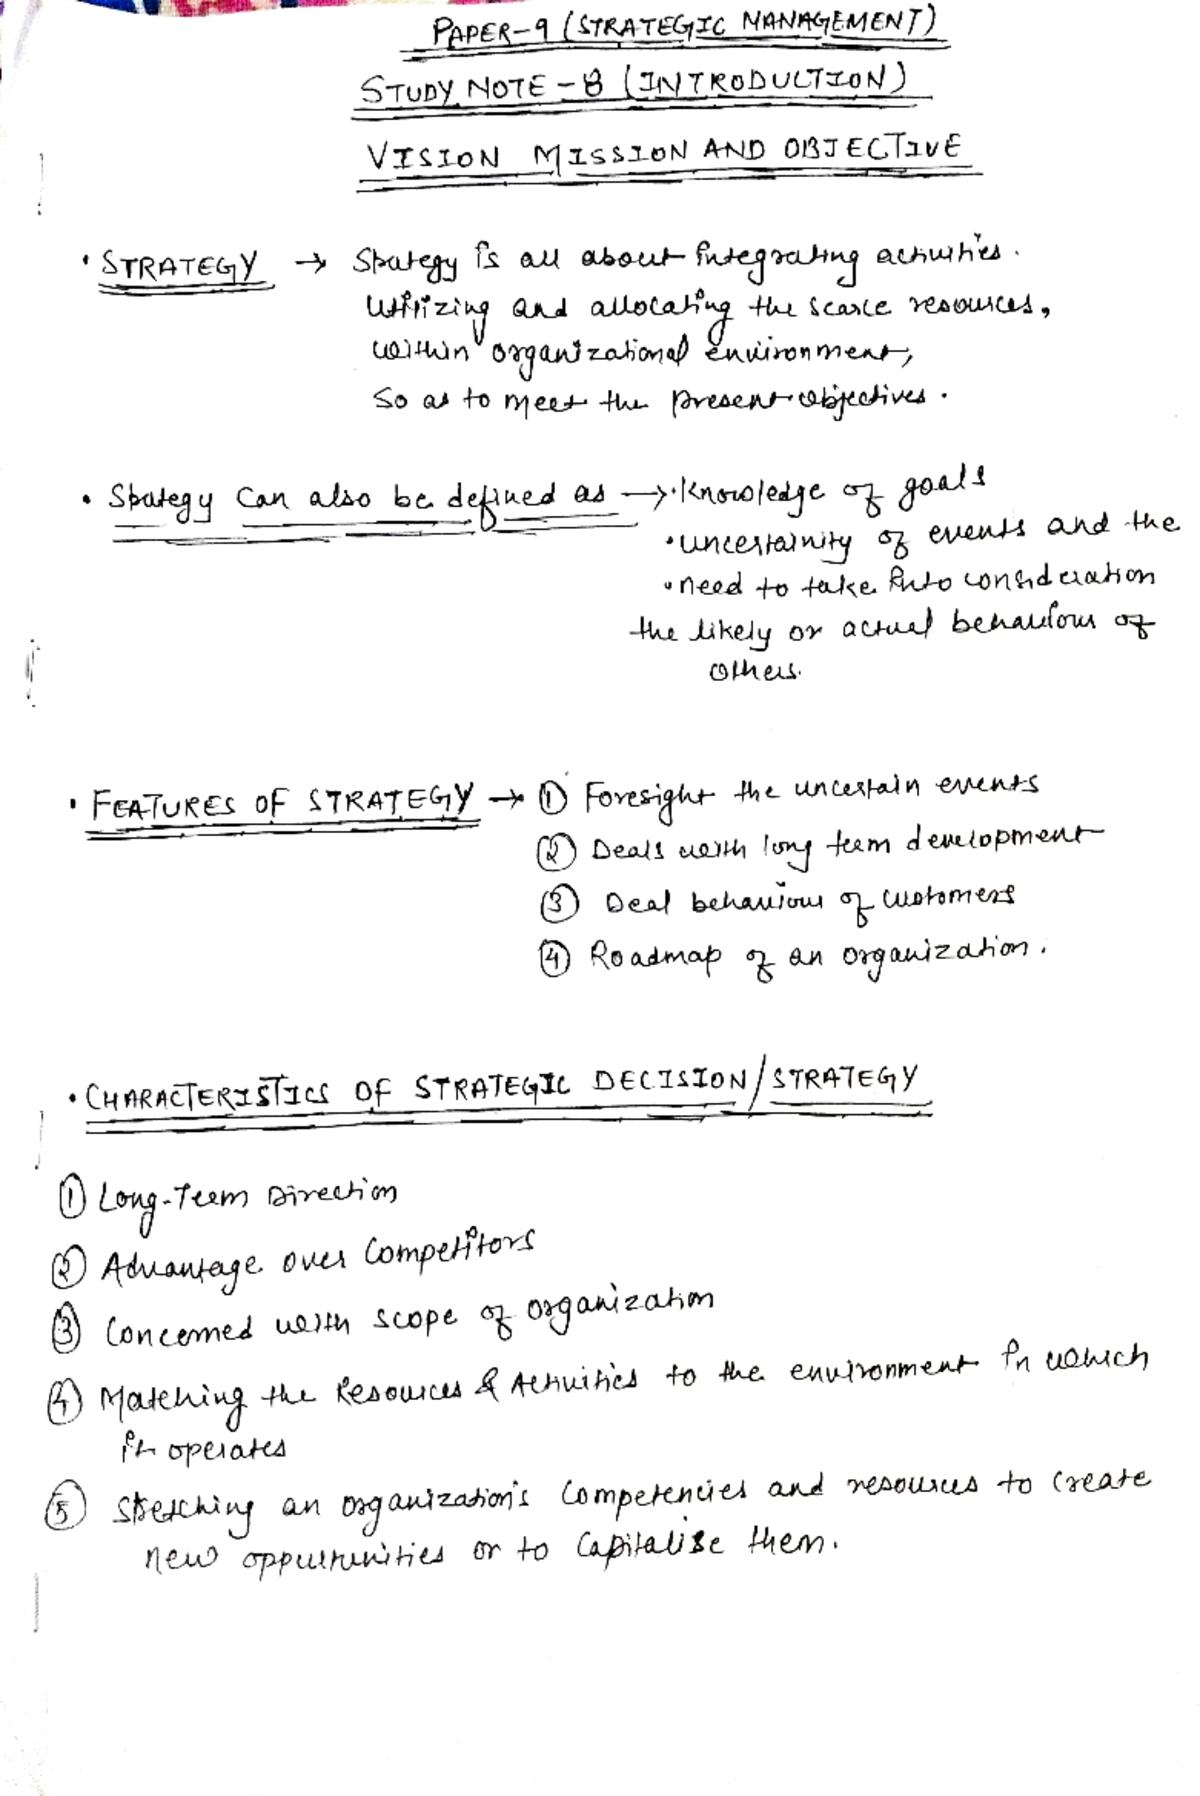 PAPER-9 (STRATEGIC MANAGEMENT)
STUDY NOTE - 8 (INTRODUCTION)
VISION MISSION AND OBJECTIVE
• STRATEGY → Strategy is all about integrating activities.
Utilizing and allocating the scarce resources,
within organizational environment,
So as to meet the present objectives.
• Strategy can also be defined as → • Knowledge of goals
• uncertainity of events and the
• need to take into consideration
the likely or actual behaviour of
others.
• FEATURES OF STRATEGY → ① Foresight the uncertain events
② Deals with long term development
③ Deal behaviour of customers
④ Roadmap of an organization.
• CHARACTERISTICS OF STRATEGIC DECISION/STRATEGY
① Long-Term Direction
② Advantage over Competitors
③ Concerned with scope of organization
④ Matching the Resources & Activities to the environment in which
it operates
⑤ Stretching an organization's Competencies and resources to create
new oppurtunities or to Capitalise them.